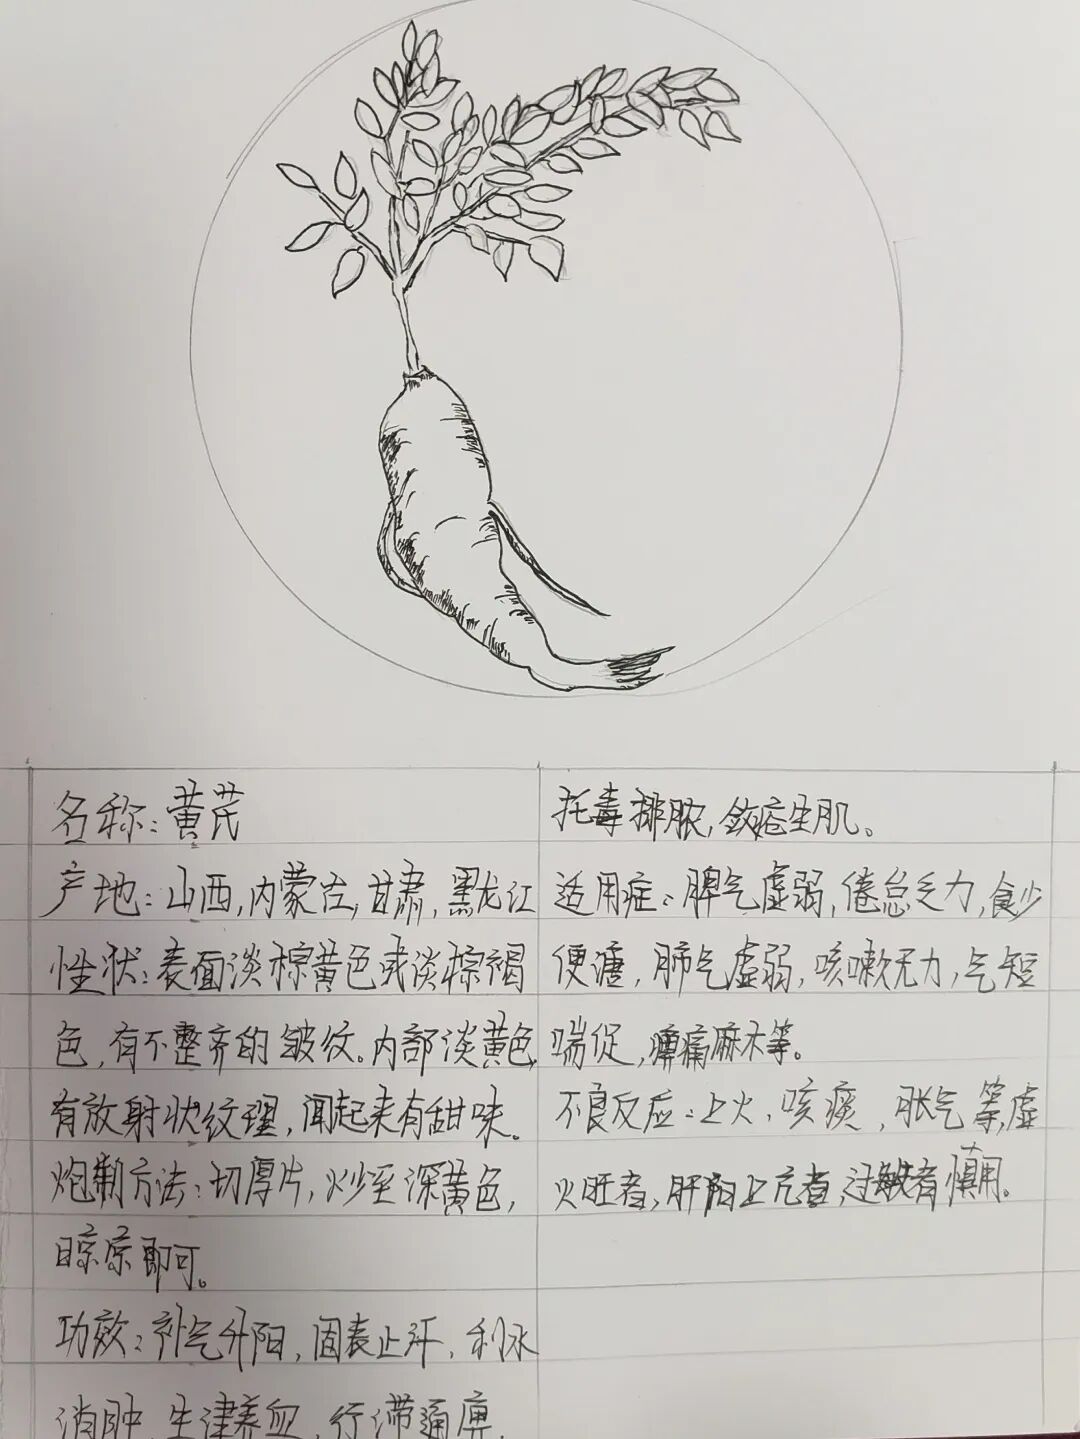 名称：黄芪
产地：山西，内蒙古，甘肃，黑龙江
性状：表面淡棕黄色或淡棕褐
色，有不整齐的皱纹。内部淡黄色，
有放射状纹理，闻起来有甜味。
炮制方法：切厚片，炒至深黄色，
晾凉即可。
功效：补气升阳，固表止汗，利水
消肿，生津养血，行滞通痹，
托毒排脓，敛疮生肌。
适用症：脾气虚弱，倦怠乏力，食少
便溏，肺气虚弱，咳嗽无力，气短
喘促，痹痛麻木等。
不良反应：上火，咳痰，胀气等，虚
火旺者，肝阳上亢者，过敏者慎用。